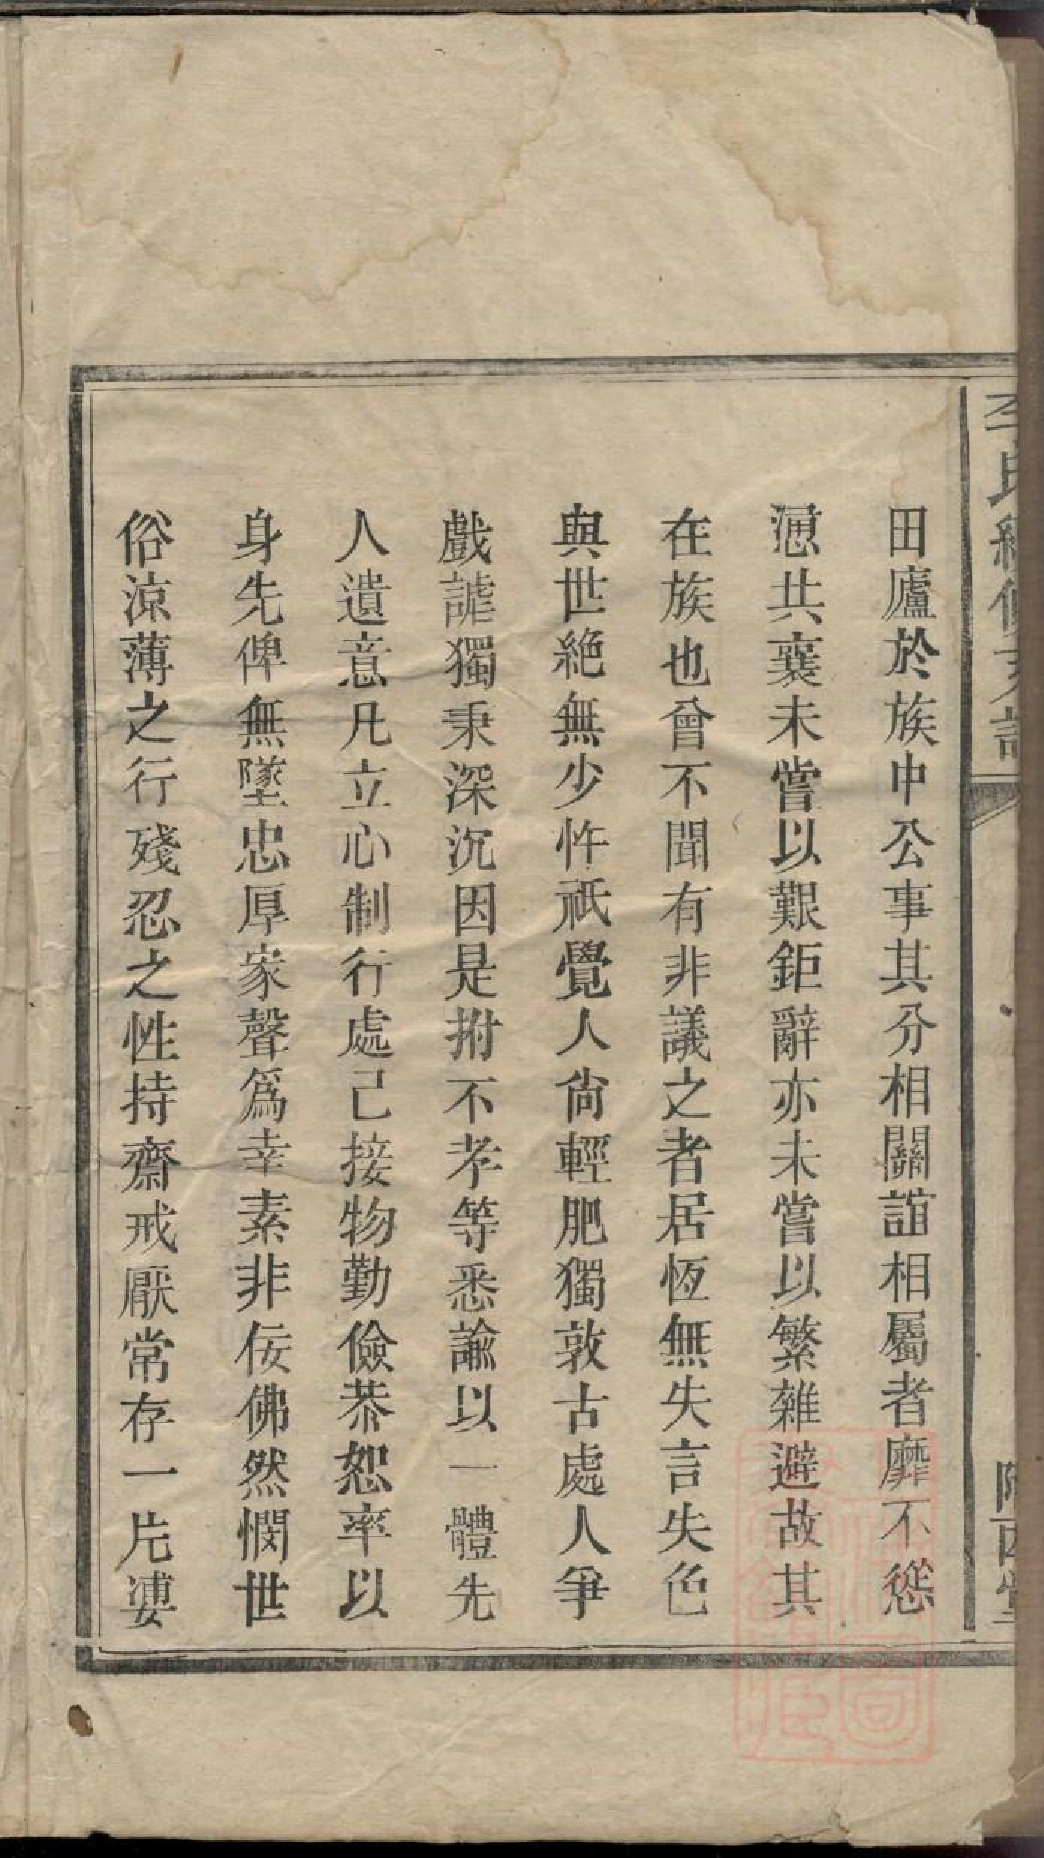 李氏續修支譜
隴西堂
田廬於族中公事其分相關誼相屬者靡不慫
慂共襄未嘗以艱鉅辭亦未嘗以繁雜避故其
在族也曾不聞有非議之者居恆無失言失色
與世絶無少忤祇覺人尙輕肥獨敦古處人爭
戲謔獨秉深沉因是拊不孝等悉諭以一體先
人遺意凡立心制行處己接物勤儉恭恕率以
身先俾無墜忠厚家聲爲幸素非佞佛然憫世
俗涼薄之行殘忍之性持齋戒厭常存一片